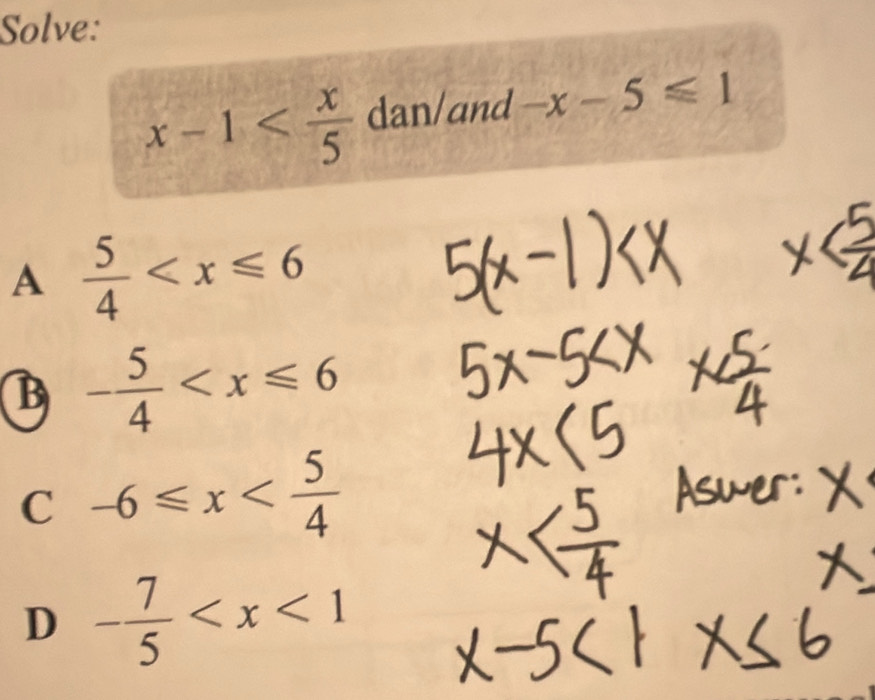 Solve:
x − 1 < x/5 dan/and −x − 5 ⩽ 1
A 5/4 < x ⩽ 6
B −5/4 < x ⩽ 6
C −6 ⩽ x < 5/4
D −7/5 < x < 1
5(x−1)<x x<5/4
5x−5<x x<5/4
4x<5
x<5/4
Aswer: x<
x≤
x−5<1 x≤6